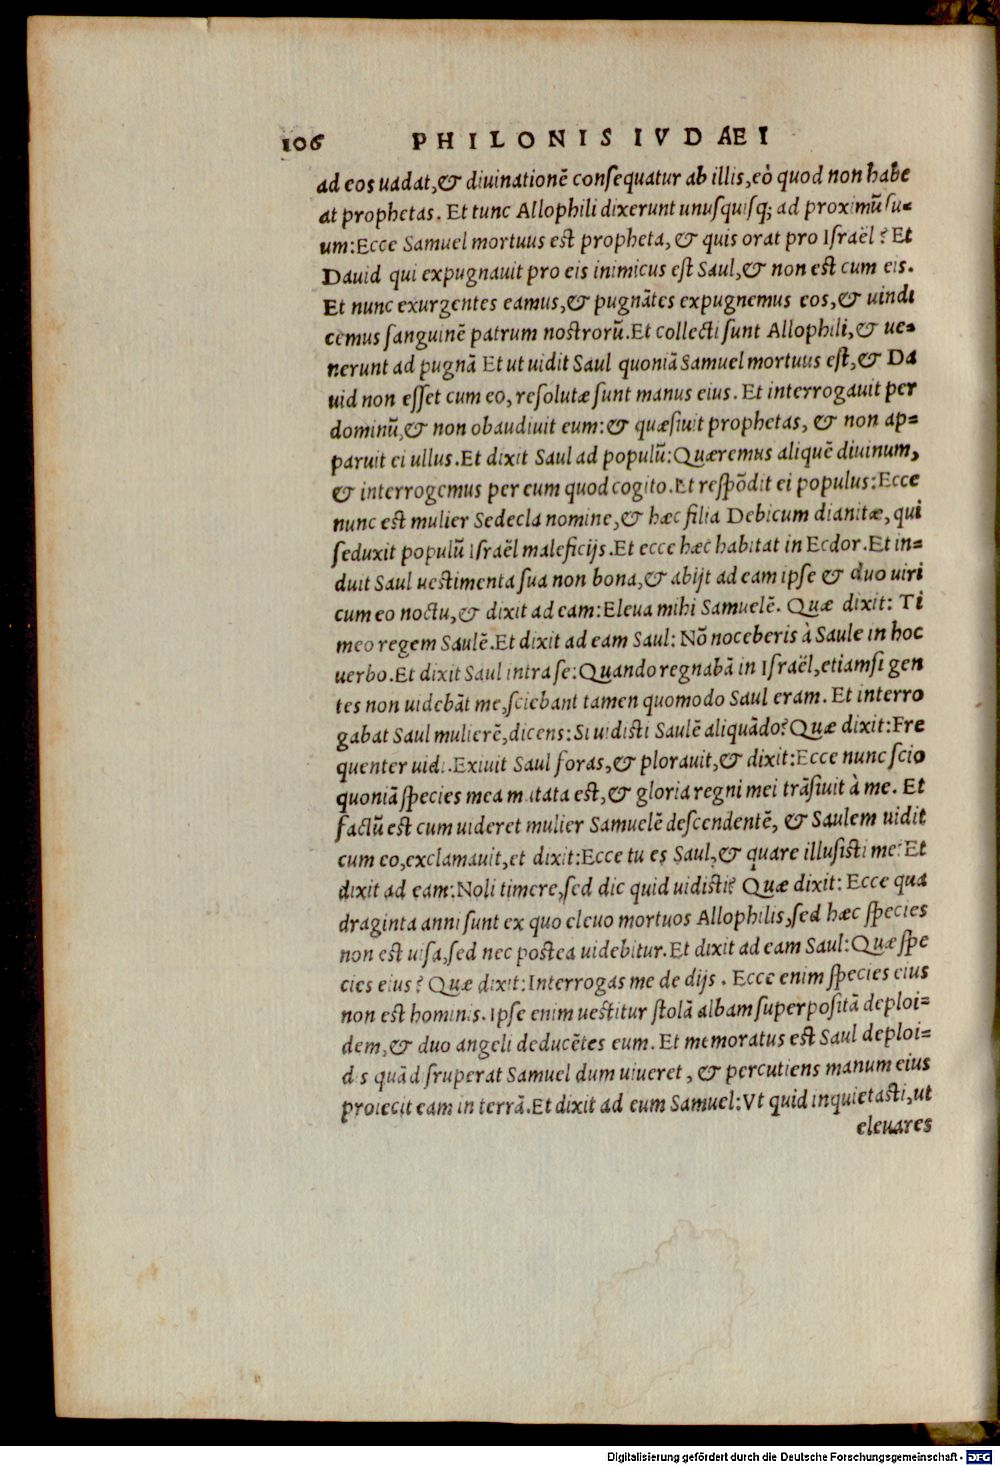 106 PHILONIS IVDAEI
ad eos uadat,& diuinationē consequatur ab illis,eò quod non habe
at prophetas. Et tunc Allophili dixerunt unusquisq; ad proximū su-
um:Ecce Samuel mortuus est propheta, & quis orat pro Israël? Et
Dauid qui expugnauit pro eis inimicus est Saul,& non est cum eis.
Et nunc exurgentes eamus,& pugnātes expugnemus eos,& uindi
cemus sanguinē patrum nostrorū.Et collecti sunt Allophili,& ue-
nerunt ad pugnā Et ut uidit Saul quoniā Samuel mortuus est,& Da
uid non esset cum eo, resolutæ sunt manus eius. Et interrogauit per
dominū,& non obaudiuit eum:& quæsiuit prophetas, & non ap-
paruit ei ullus.Et dixit Saul ad populū:Quæremus aliquē diuinum,
& interrogemus per eum quod cogito.Et respōdit ei populus:Ecce
nunc est mulier Sedecla nomine,& hæc filia Debicum dianitæ, qui
seduxit populū Israël maleficijs.Et ecce hæc habitat in Ecdor.Et in-
duit Saul uestimenta sua non bona,& abijt ad eam ipse & duo uiri
cum eo noctu,& dixit ad eam:Eleua mihi Samuelē. Quæ dixit: Ti
meo regem Saulē.Et dixit ad eam Saul: Nō noceberis à Saule in hoc
uerbo.Et dixit Saul intra se:Quando regnabā in Israël,etiamsi gen
tes non uidebāt me,sciebant tamen quomodo Saul eram. Et interro
gabat Saul mulierē,dicens:Si uidisti Saulē aliquādo?Quæ dixit:Fre
quenter uidi.Exiuit Saul foras,& plorauit,& dixit:Ecce nunc scio
quoniā species mea mutata est,& gloria regni mei trāsiuit à me. Et
factū est cum uideret mulier Samuelē descendentē, & Saulem uidit
cum eo,exclamauit,et dixit:Ecce tu es Saul,& quare illusisti me?Et
dixit ad eam:Noli timere,sed dic quid uidisti? Quæ dixit: Ecce qua
draginta anni sunt ex quo eleuo mortuos Allophilis,sed hæc species
non est uisa,sed nec postea uidebitur.Et dixit ad eam Saul:Quæ spe
cies eius? Quæ dixit:Interrogas me de dijs. Ecce enim species eius
non est hominis.Ipse enim uestitur stolā albam superpositā deploi-
dem,& duo angeli deducētes eum. Et memoratus est Saul deploi-
dis quād sruperat Samuel dum uiueret, & percutiens manum eius
proiecit eam in terrā.Et dixit ad eum Samuel:Vt quid inquietasti,ut
eleuares
Digitalisierung gefördert durch die Deutsche Forschungsgemeinschaft - DFG